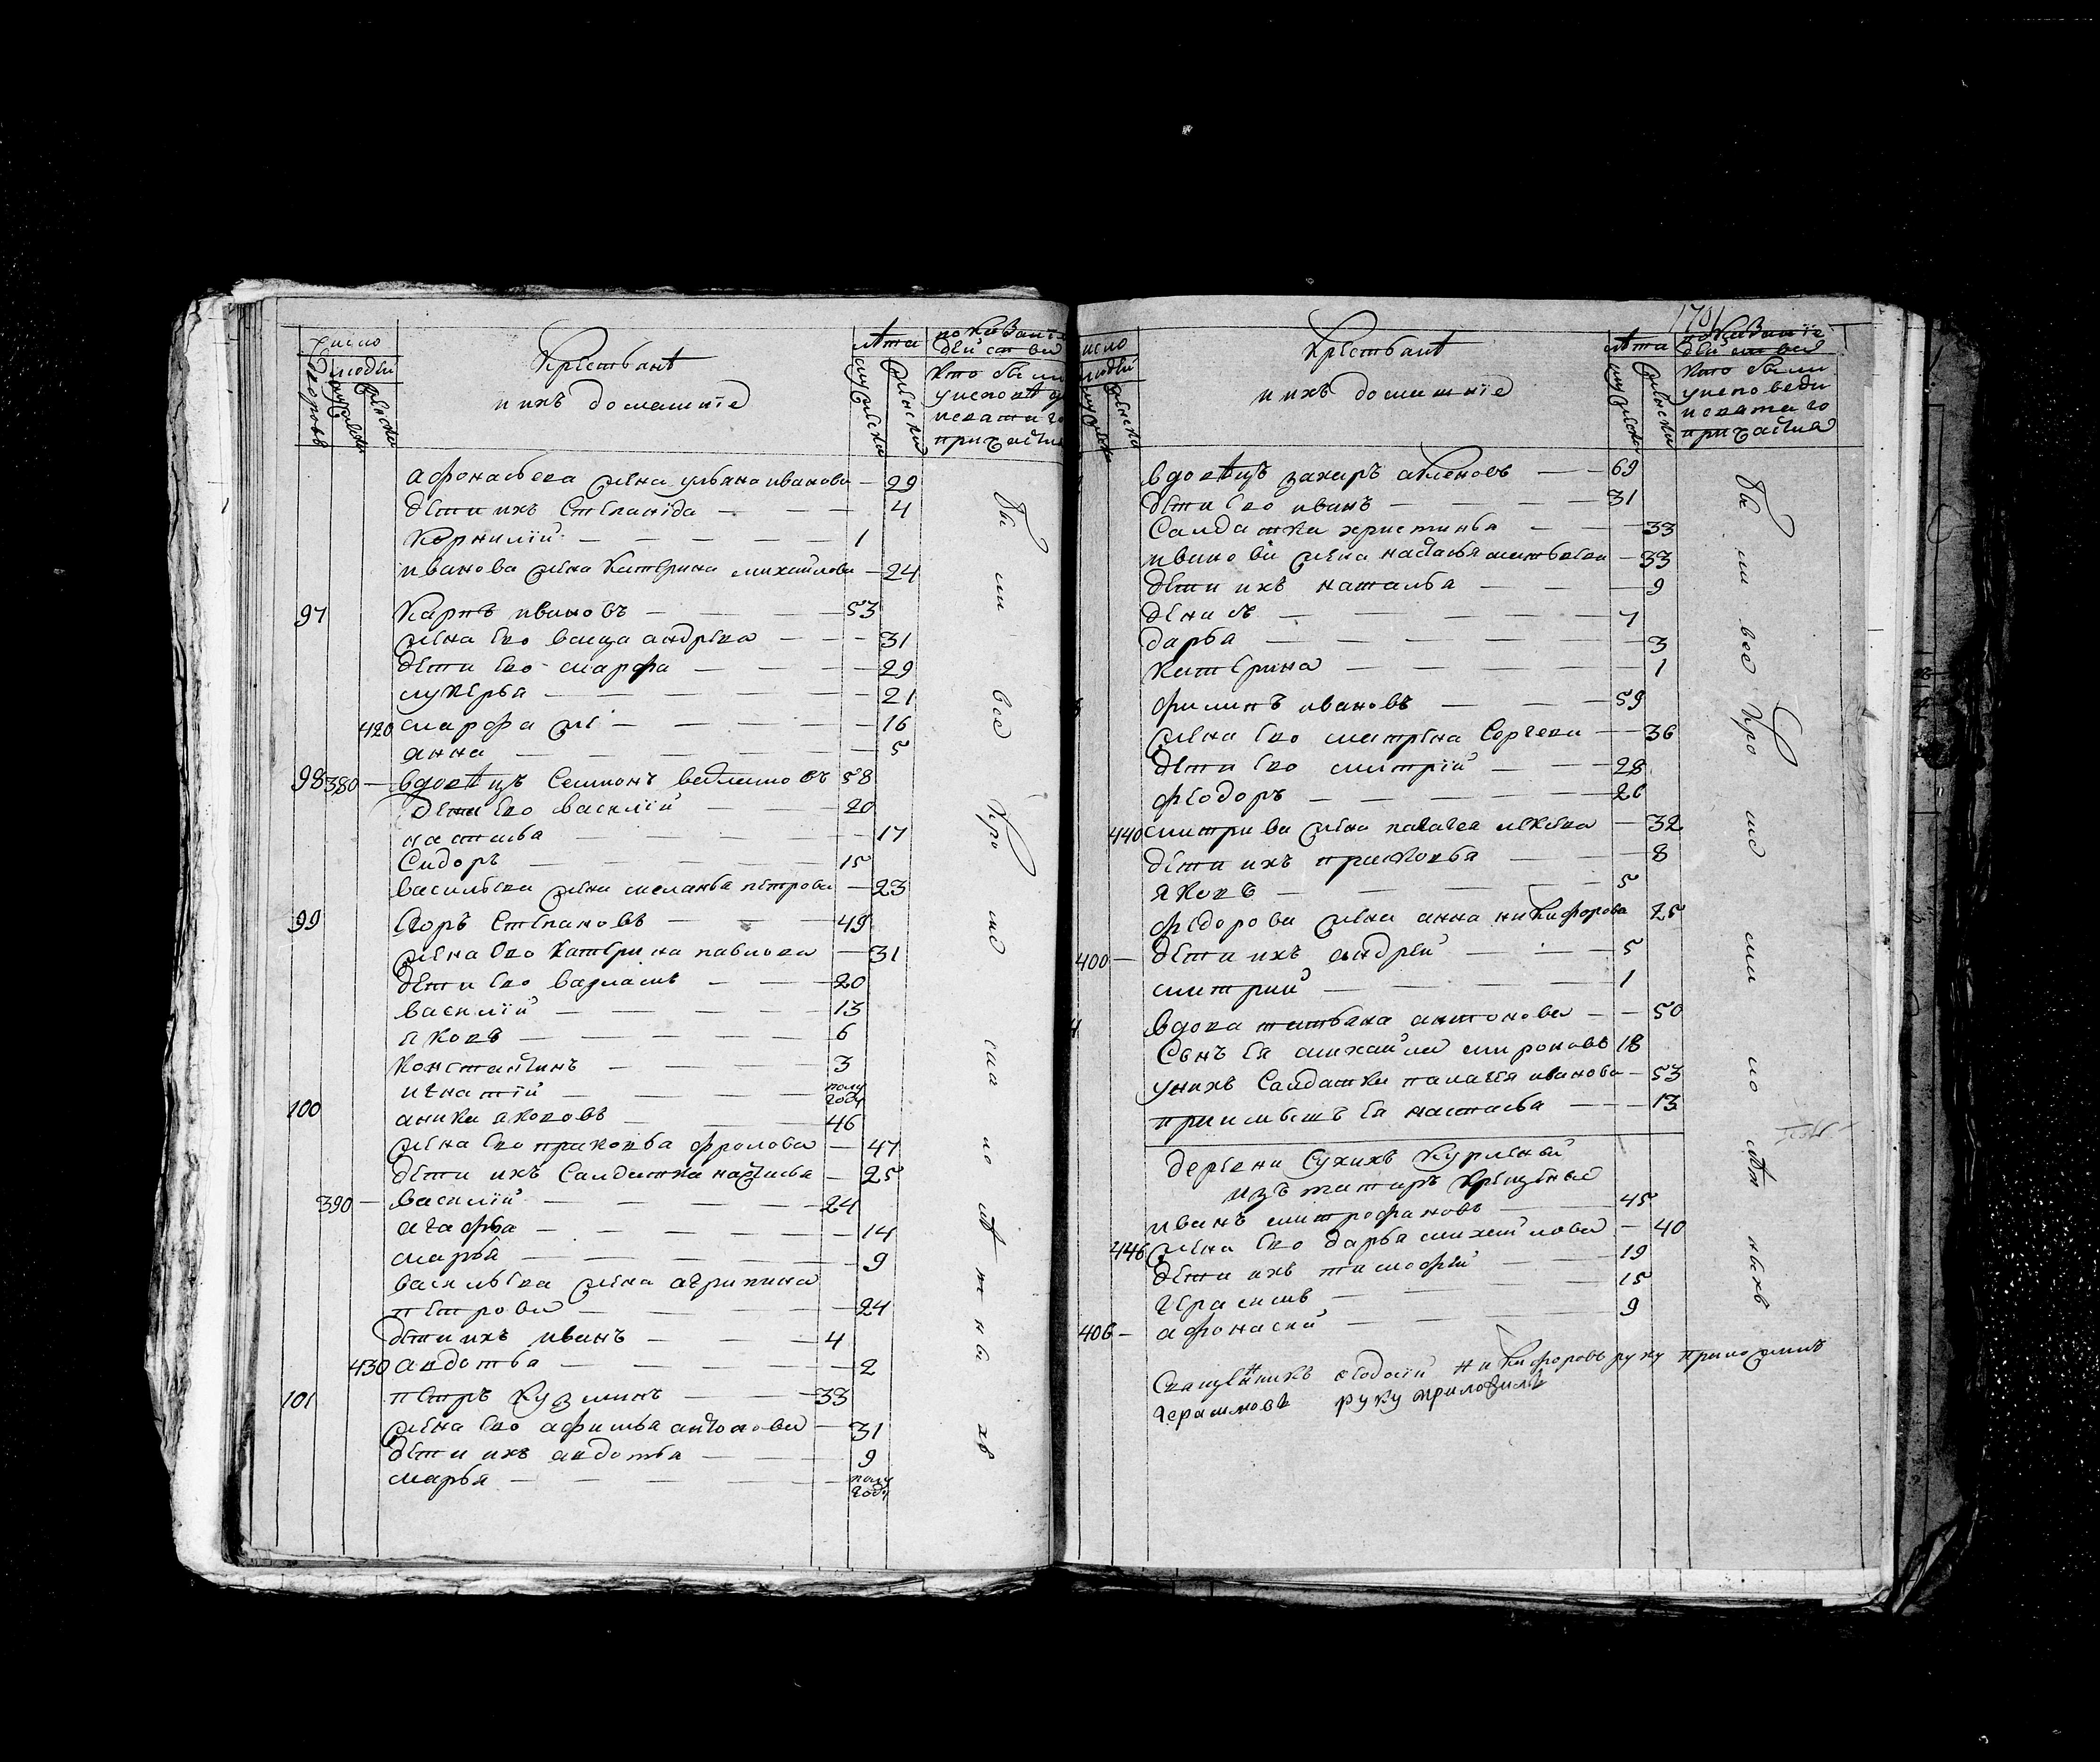 число
людей
дворовъ
мужеска
женска
Крестьянѣ
и ихъ домашние
лѣта
мужески
женски
показание
действа
кто были
у исповѣд
и святаго
причастия
Афонасьева жена ульяна иванова — 29
дети ихъ Степанида — 4
Корнилий — 1
иванова жена Катерина михайлова — 24
97 Карпъ ивановъ — 53
жена ево васица андреева — 31
дети ево марфа — 29
лукерья — 21
420 марфа же — 16
анна — 5
98 380 — вдовѣцъ Семионъ 58
дети ево василий — 20
наталья — 17
Сидоръ — 15
васильева жена меланья петрова — 23
99 Егоръ Степановъ — 49
жена ево Катерина павлова — 31
дети ево варламъ — 20
василий — 13
яковъ — 6
Константинъ — 3
игнатий — полу году
100 аника яковов — 46
жена ево прасковья фролова — 47
дети ихъ Салдатка наталья — 25
390 — василий — 24
агафья — 14
марья — 9
васильева жена агрипина
петрова — 24
дети ихъ иванъ — 4
430 авдотья — 2
101 петръ Кузминъ — 33
жена ево афимья антонова — 31
дети ихъ авдотья — 9
марья — полу году
бы ли все Кро ме ма ло лѣ т ны хъ
число
людей
мужеск
женска
Крестьянѣ
и ихъ домашние
лѣта
мужески
женски
показание
действа
кто были
у исповеди
и святаго
причастия
вдовѣцъ захаръ — 69
дети ево иванъ — 31
Салдатка христинья — 33
иванова жена настасья матвеева — 33
дети ихъ наталья — 9
денисъ — 7
дарья — 3
Катерина — 1
филипъ ивановъ — 59
жена ево матрена Сергеева — 36
дети ево митрий — 28
феодоръ — 26
440 митрива жена палагея — 32
дети ихъ прасковья — 8
яковъ — 5
федорова жена анна никифорова 25
400 — дети ихъ андрей — 5
митрий — 1
вдова татьяна антонова — 50
Сынъ ея михайла мироновъ 18
у нихъ Салдатка палагея иванова — 53
приимышъ ея настасья — 13
деревни Сухихъ Курлены
изъ татаръ Крещеные
иванъ митрофановъ — 45
446 жена ево дарья михайлова — 40
дети ихъ тимофей — 19
герасимъ — 15
406 — афонасей — 9
бы ли все Кро ме ма ло лѣт ныхъ
Сващенникъ феодосий никифоровъ руку приложилъ
герасимовъ руку приложилъ